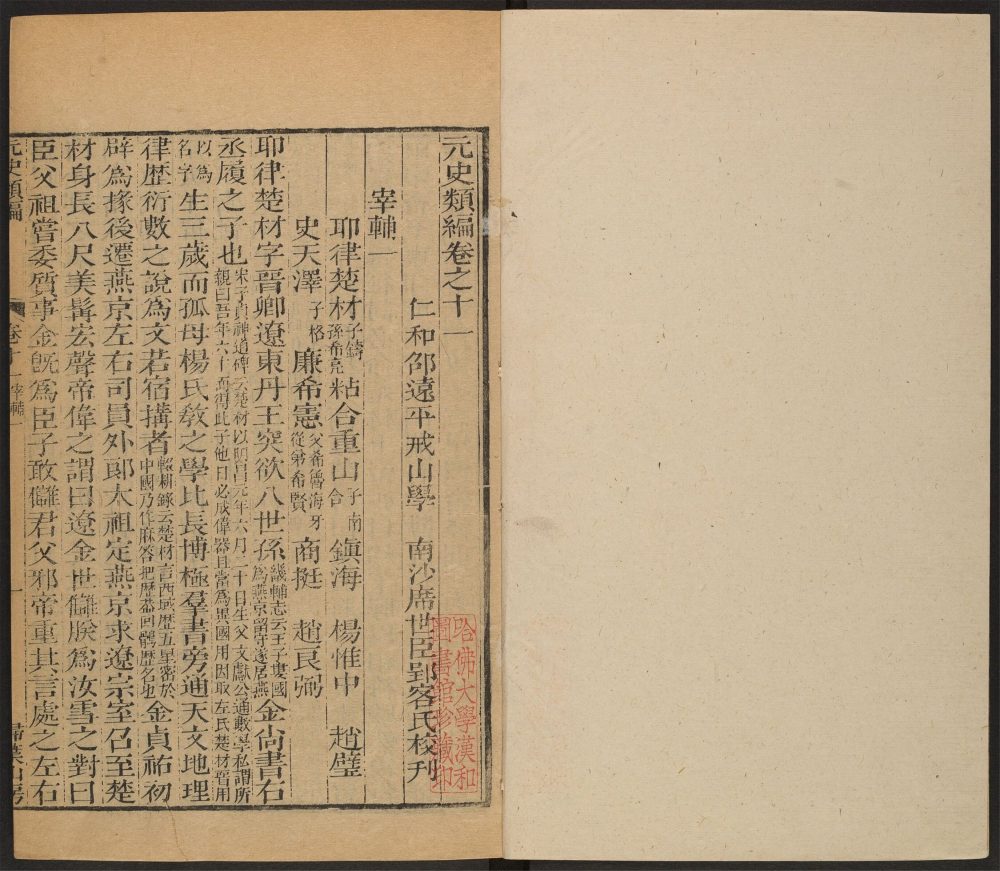 元史類編卷之十一
仁和邵遠平戒山學　南沙席世臣郢客氏校刊
宰輔一
耶律楚材子鑄孫希亮　粘合重山子南合　鎮海　楊惟中　趙璧
史天澤子格　廉希憲父希魯海牙從弟希賢　商挺　趙良弼
耶律楚材字晉卿遼東丹王突欲八世孫畿輔志云王子婁國為燕京留守遂居燕金尚書右
丞履之子也宋子貞神道碑云楚材以明昌元年六月二十日生父文獻公通數學私謂所親曰吾年六十而得此子他日必成偉器且當為異國用因取左氏楚材晉用
以為名字生三歲而孤母楊氏教之學比長博極羣書旁通天文地理
律歷衍數之說為文若宿搆者輟耕錄云楚材言西域歷五星密於中國乃作麻答把歷葢回鶻歷名也金貞祐初
辟為掾後遷燕京左右司員外郎太祖定燕京求遼宗室召至楚
材身長八尺美髯宏聲帝偉之謂曰遼金世讎朕為汝雪之對曰
臣父祖嘗委質事金既為臣子敢讎君父邪帝重其言處之左右
元史類編　卷十一　宰輔一　一　掃葉山房
哈佛大學漢和圖書館珍藏印